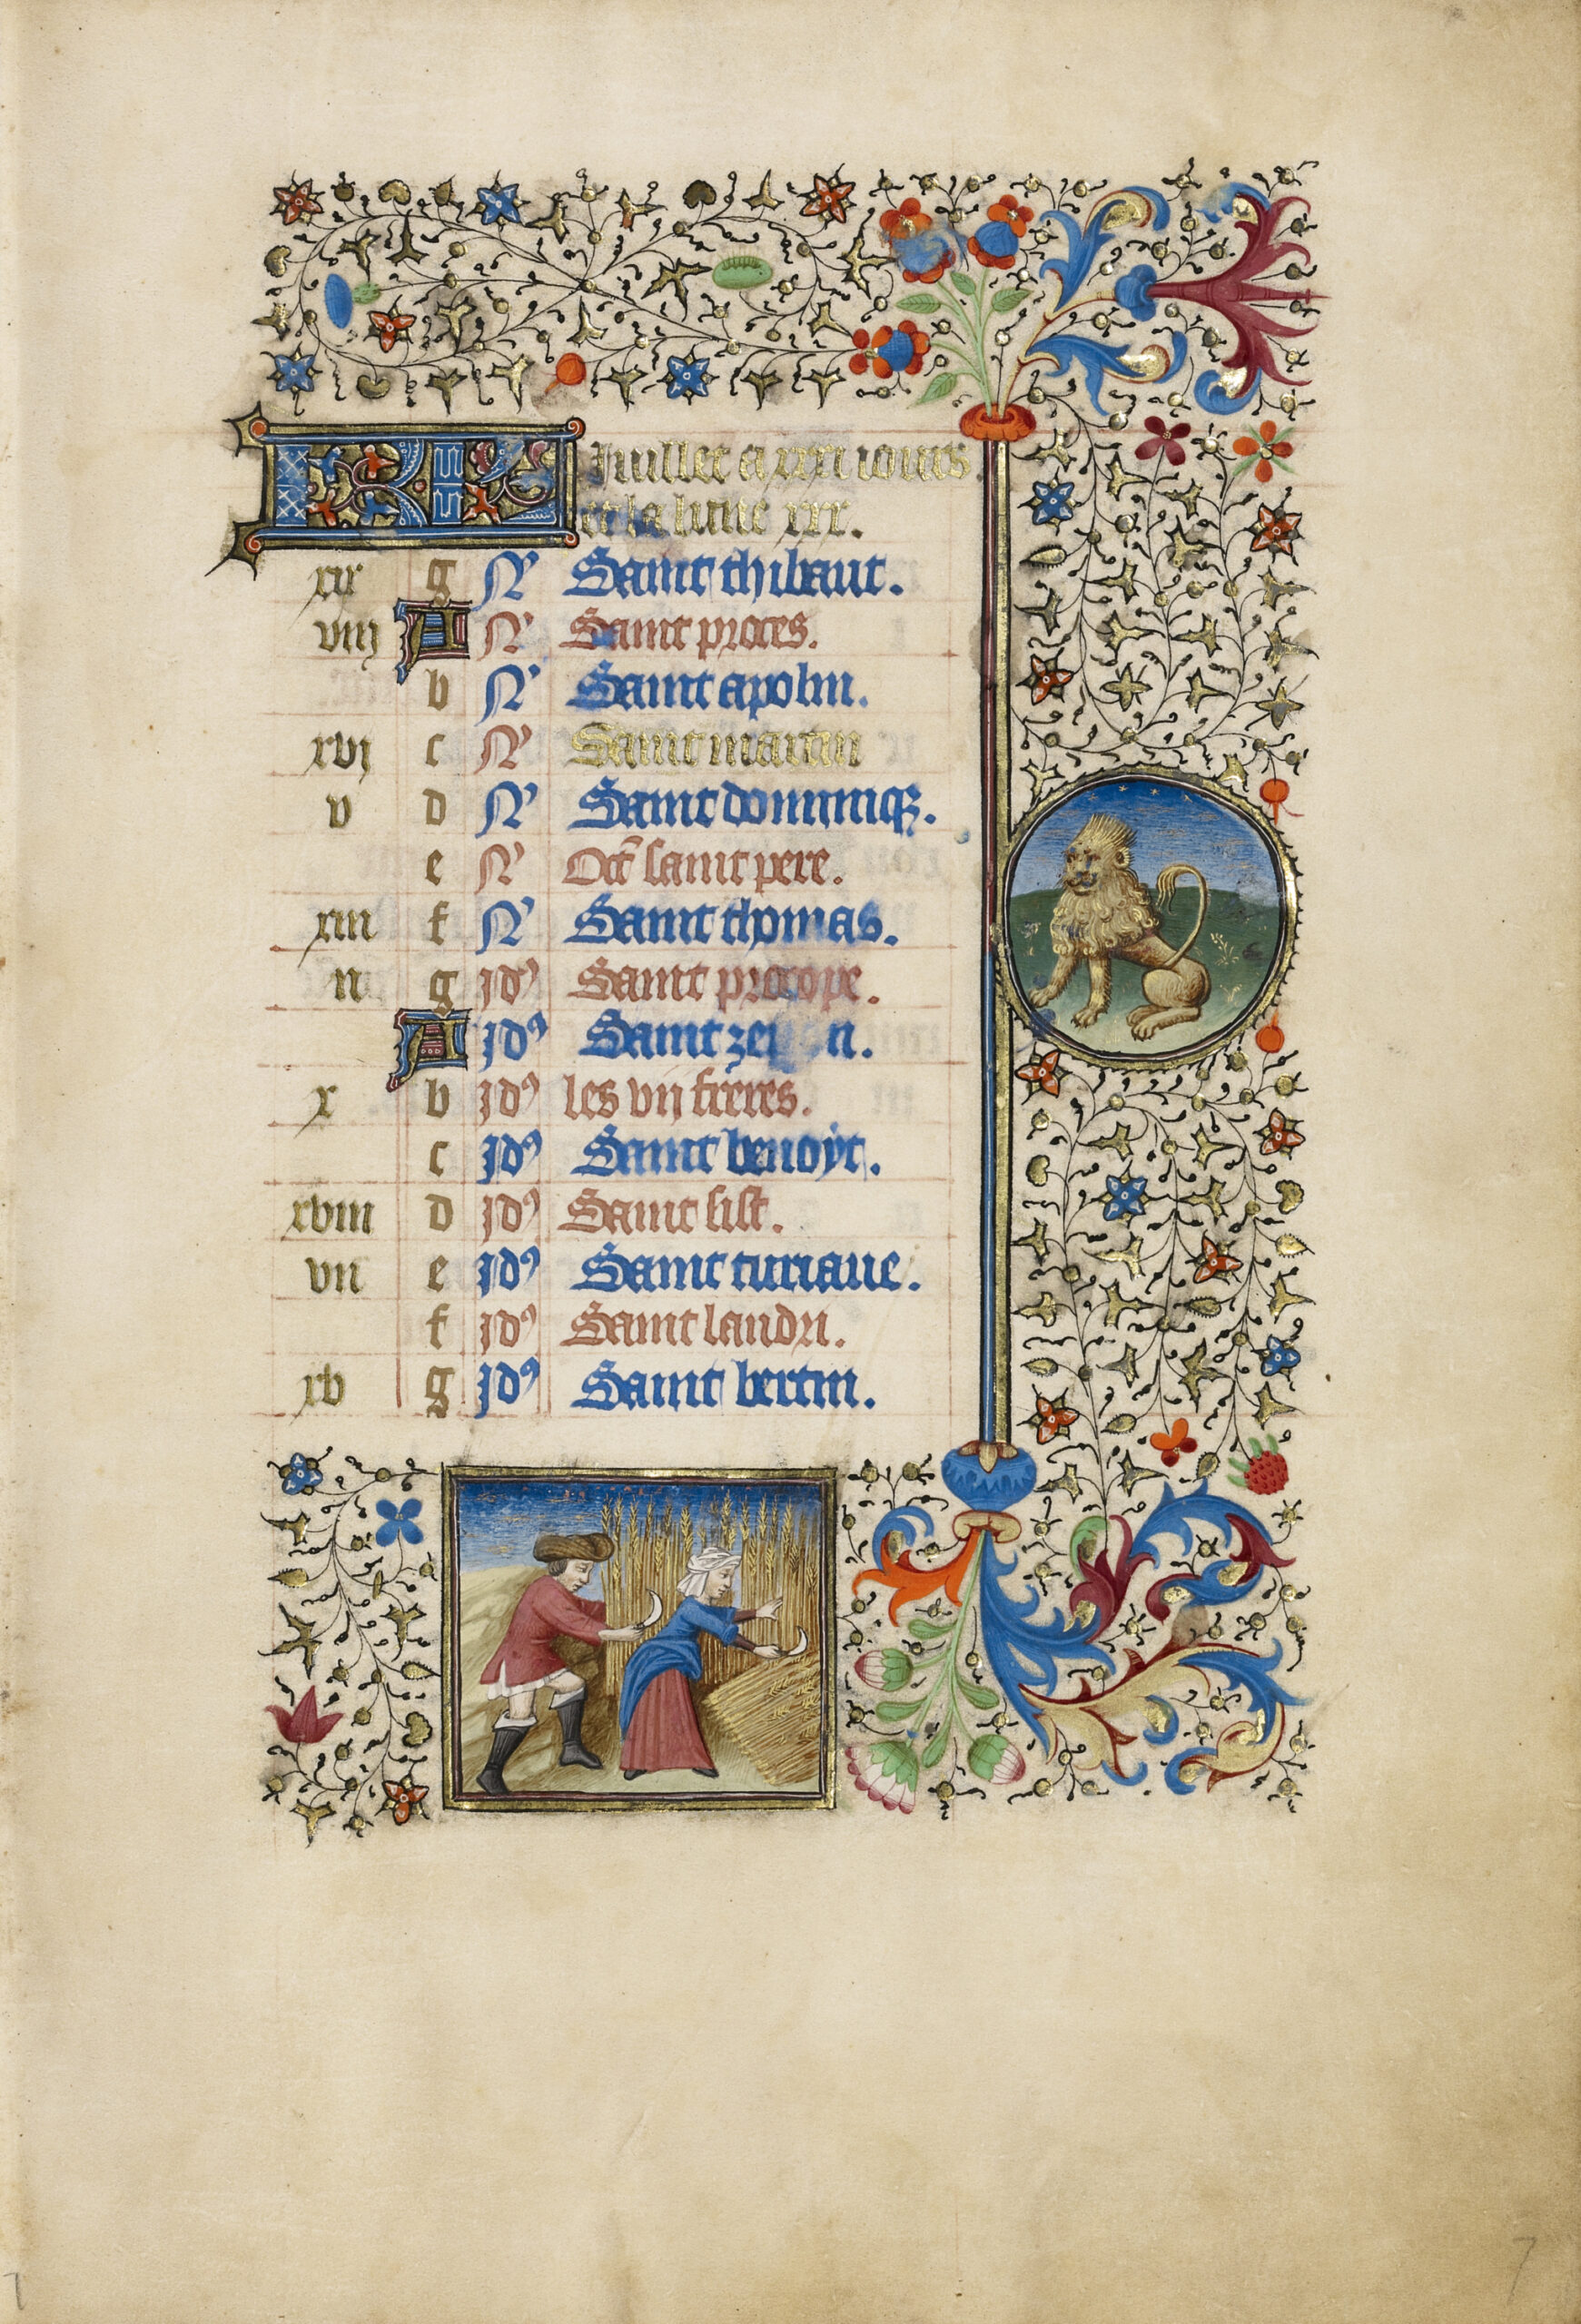 KL Juillet a xxxi iours
et la lune xxx.
xix g N' Saint thibaut.
viij A N' Saint proces.
b N' Saint apolin.
xvj c N' Saint martin
v d N' Saint dominiqȝ.
e N' Oct̄ saint pere.
xiii f N' Saint thomas.
ii g jd' Saint procope.
A jdꝰ Saint n.
x b jdꝰ les vij freres.
c jdꝰ Saint benoyt.
xviii d jdꝰ Saint sist.
vii e jdꝰ Saint turiaue.
f jdꝰ Saint landri.
xv g jdꝰ Saint bertin.
7